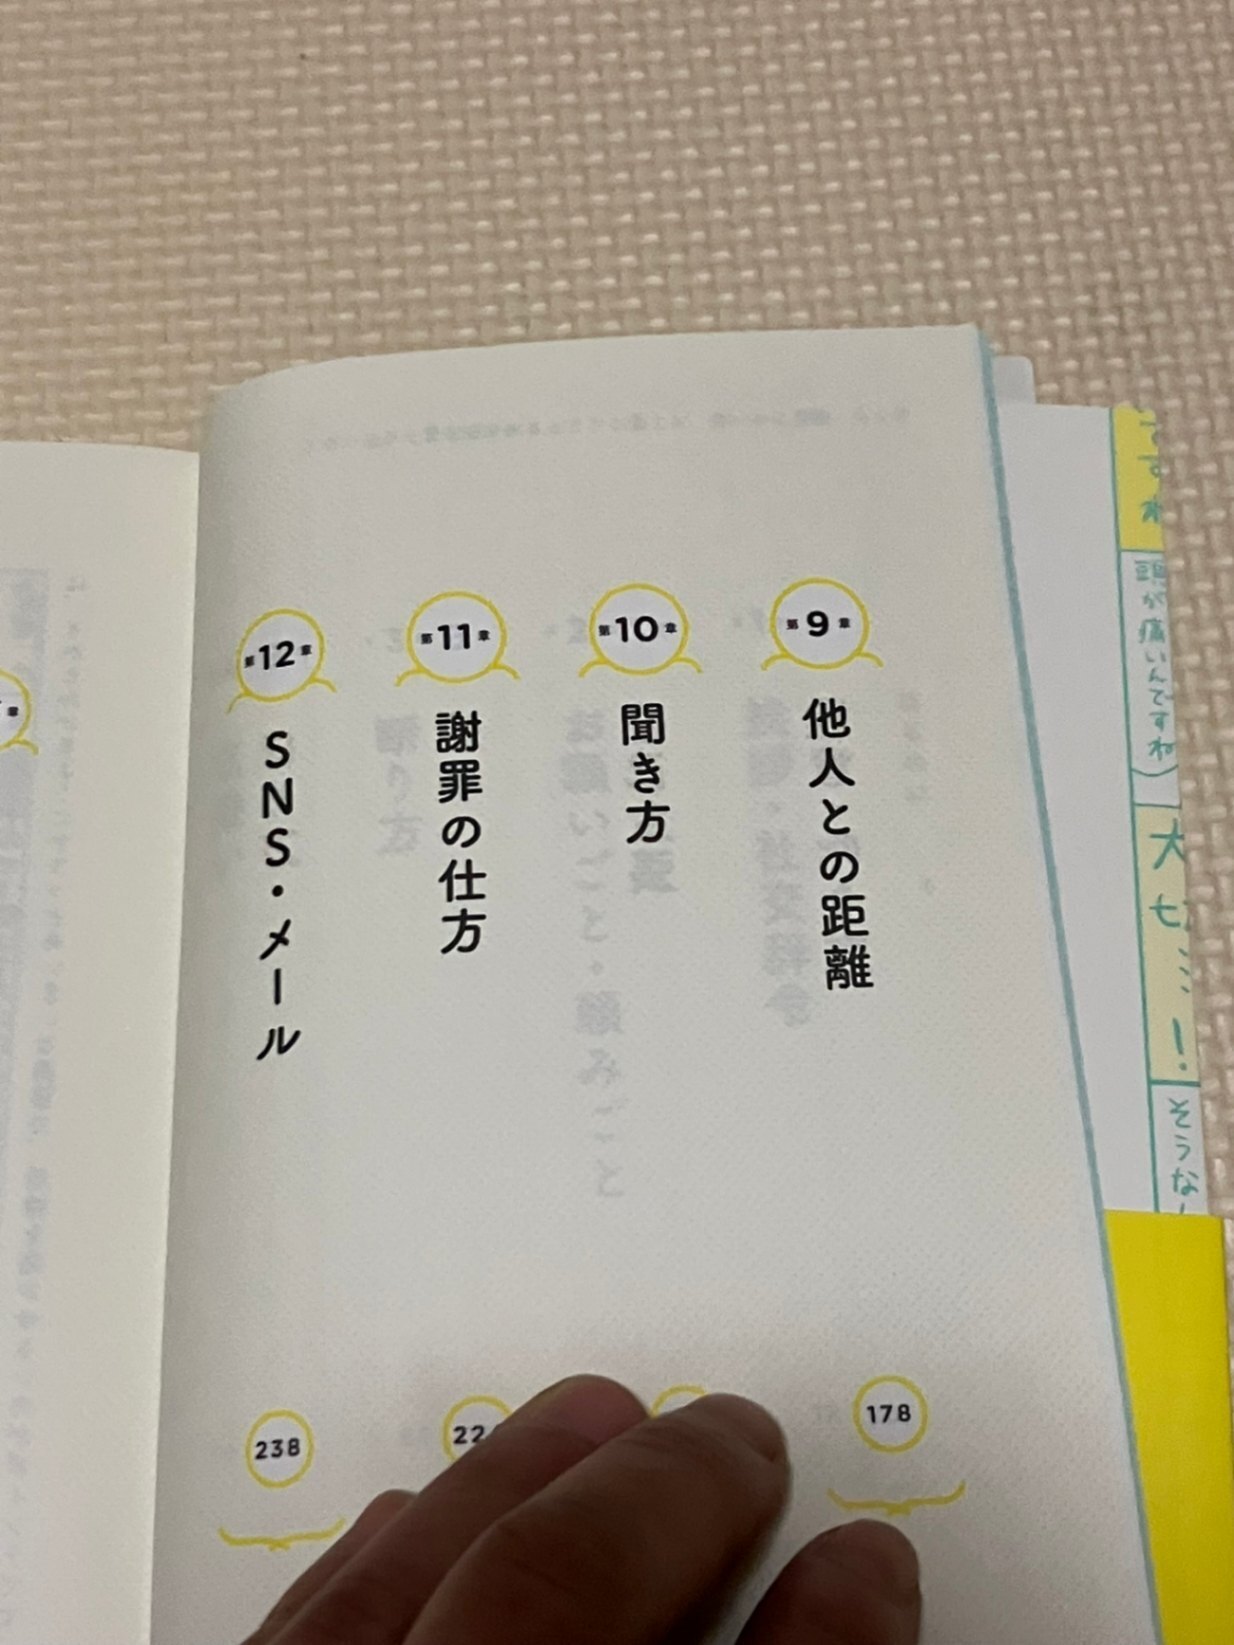 第9章
他人との距離
178
第10章
聞き方
第11章
謝罪の仕方
第12章
SNS・メール
238
ですね
頭が痛いんですね)
大切…!
そうな
章